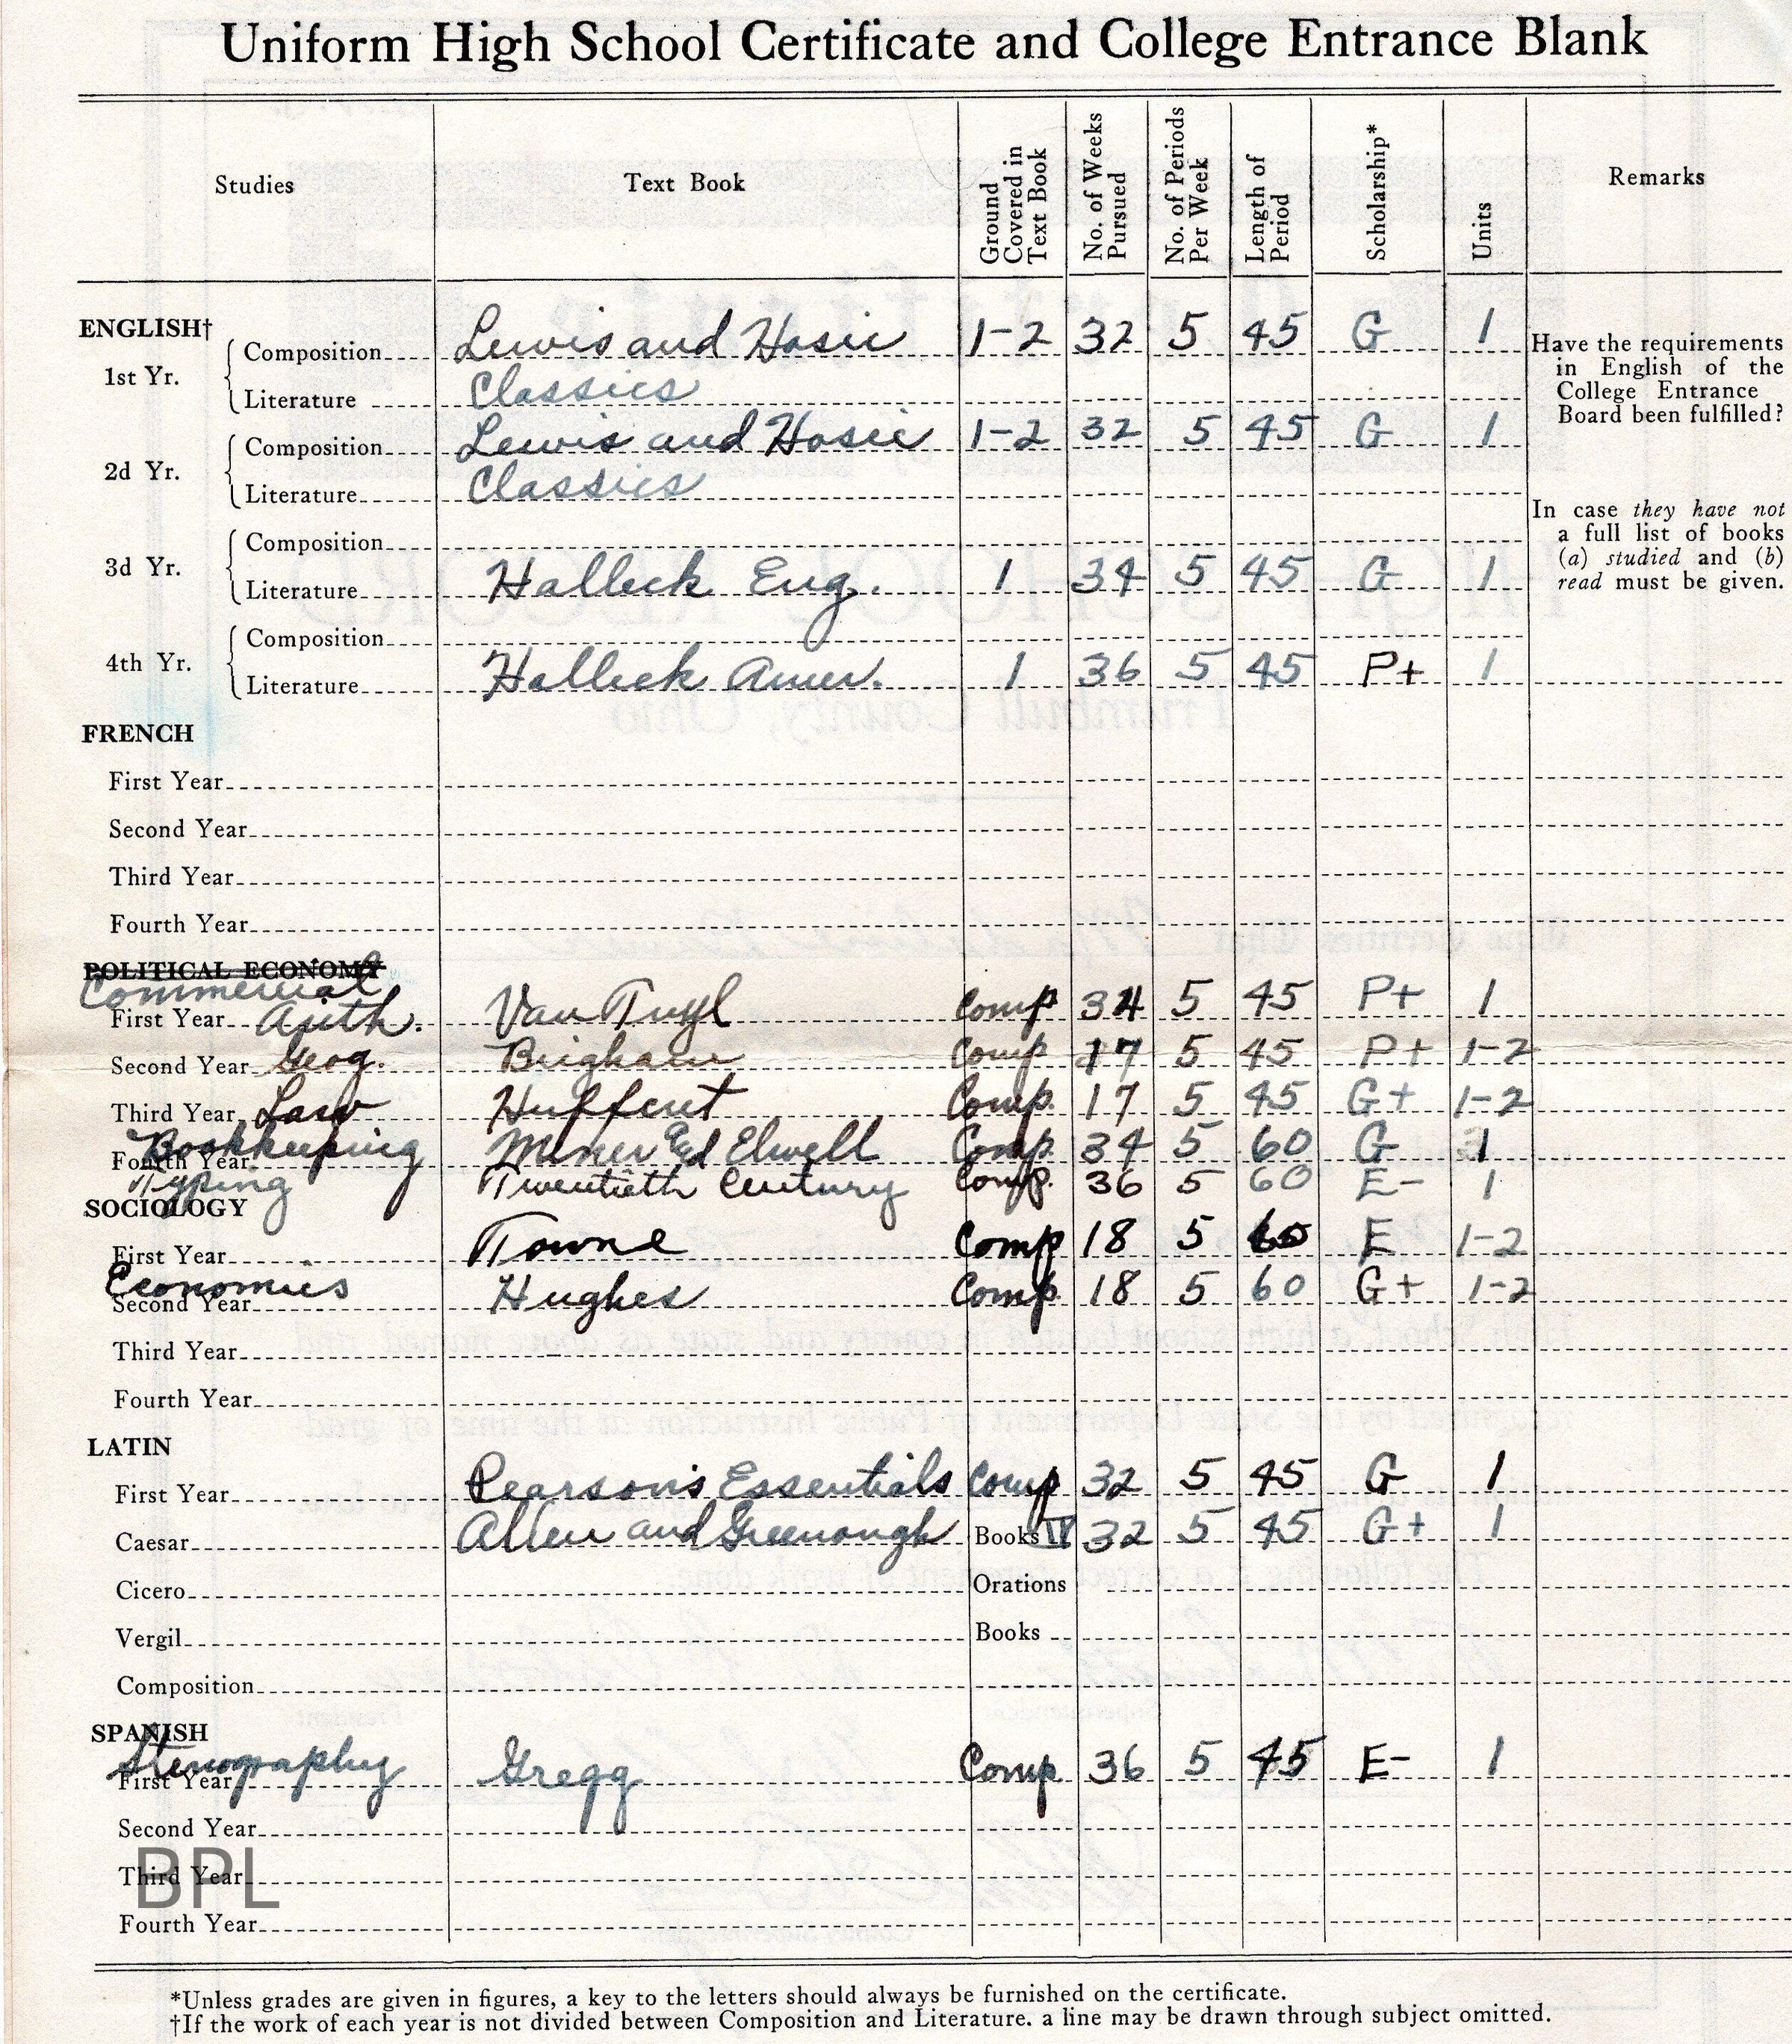 Uniform High School Certificate and College Entrance Blank
Studies Text Book Ground Covered in Text Book No. of Weeks Pursued No. of Periods Per Week Length of Period Scholarship* Units Remarks
ENGLISH†
1st Yr.
Composition Lewis and Hosic 1-2 32 5 45 G 1
Literature Classics
2d Yr.
Composition Lewis and Hosic 1-2 32 5 45 G 1
Literature Classics
3d Yr.
Composition
Literature Halleck Eng. 1 34 5 45 G 1
4th Yr.
Composition
Literature Halleck Amer. 1 36 5 45 P+ 1
Have the requirements
in English of the
College Entrance
Board been fulfilled?
In case they have not
a full list of books
(a) studied and (b)
read must be given.
FRENCH
First Year
Second Year
Third Year
Fourth Year
POLITICAL ECONOMY
Commercial
First Year Arith. Van Tuyl Comp 34 5 45 P+ 1
Second Year Geog. Brigham Comp 17 5 45 P+ 1-2
Third Year Law Huffcut Comp. 17 5 45 G+ 1-2
Fourth Year Bookkeeping Miner Ed Elwell Comp. 34 5 60 G 1
Typing Twentieth Century Comp. 36 5 60 E- 1
SOCIOLOGY
First Year Towne Comp 18 5 60 E 1-2
Economics
Second Year Hughes Comp. 18 5 60 G+ 1-2
Third Year
Fourth Year
LATIN
First Year Pearson's Essentials Comp 32 5 45 G 1
Caesar Allen and Greenough Books IV 32 5 45 G+ 1
Cicero Orations
Vergil Books
Composition
SPANISH
Stenography
First Year Gregg Comp. 36 5 45 E- 1
Second Year
Third Year
BPL
Fourth Year
*Unless grades are given in figures, a key to the letters should always be furnished on the certificate.
†If the work of each year is not divided between Composition and Literature. a line may be drawn through subject omitted.